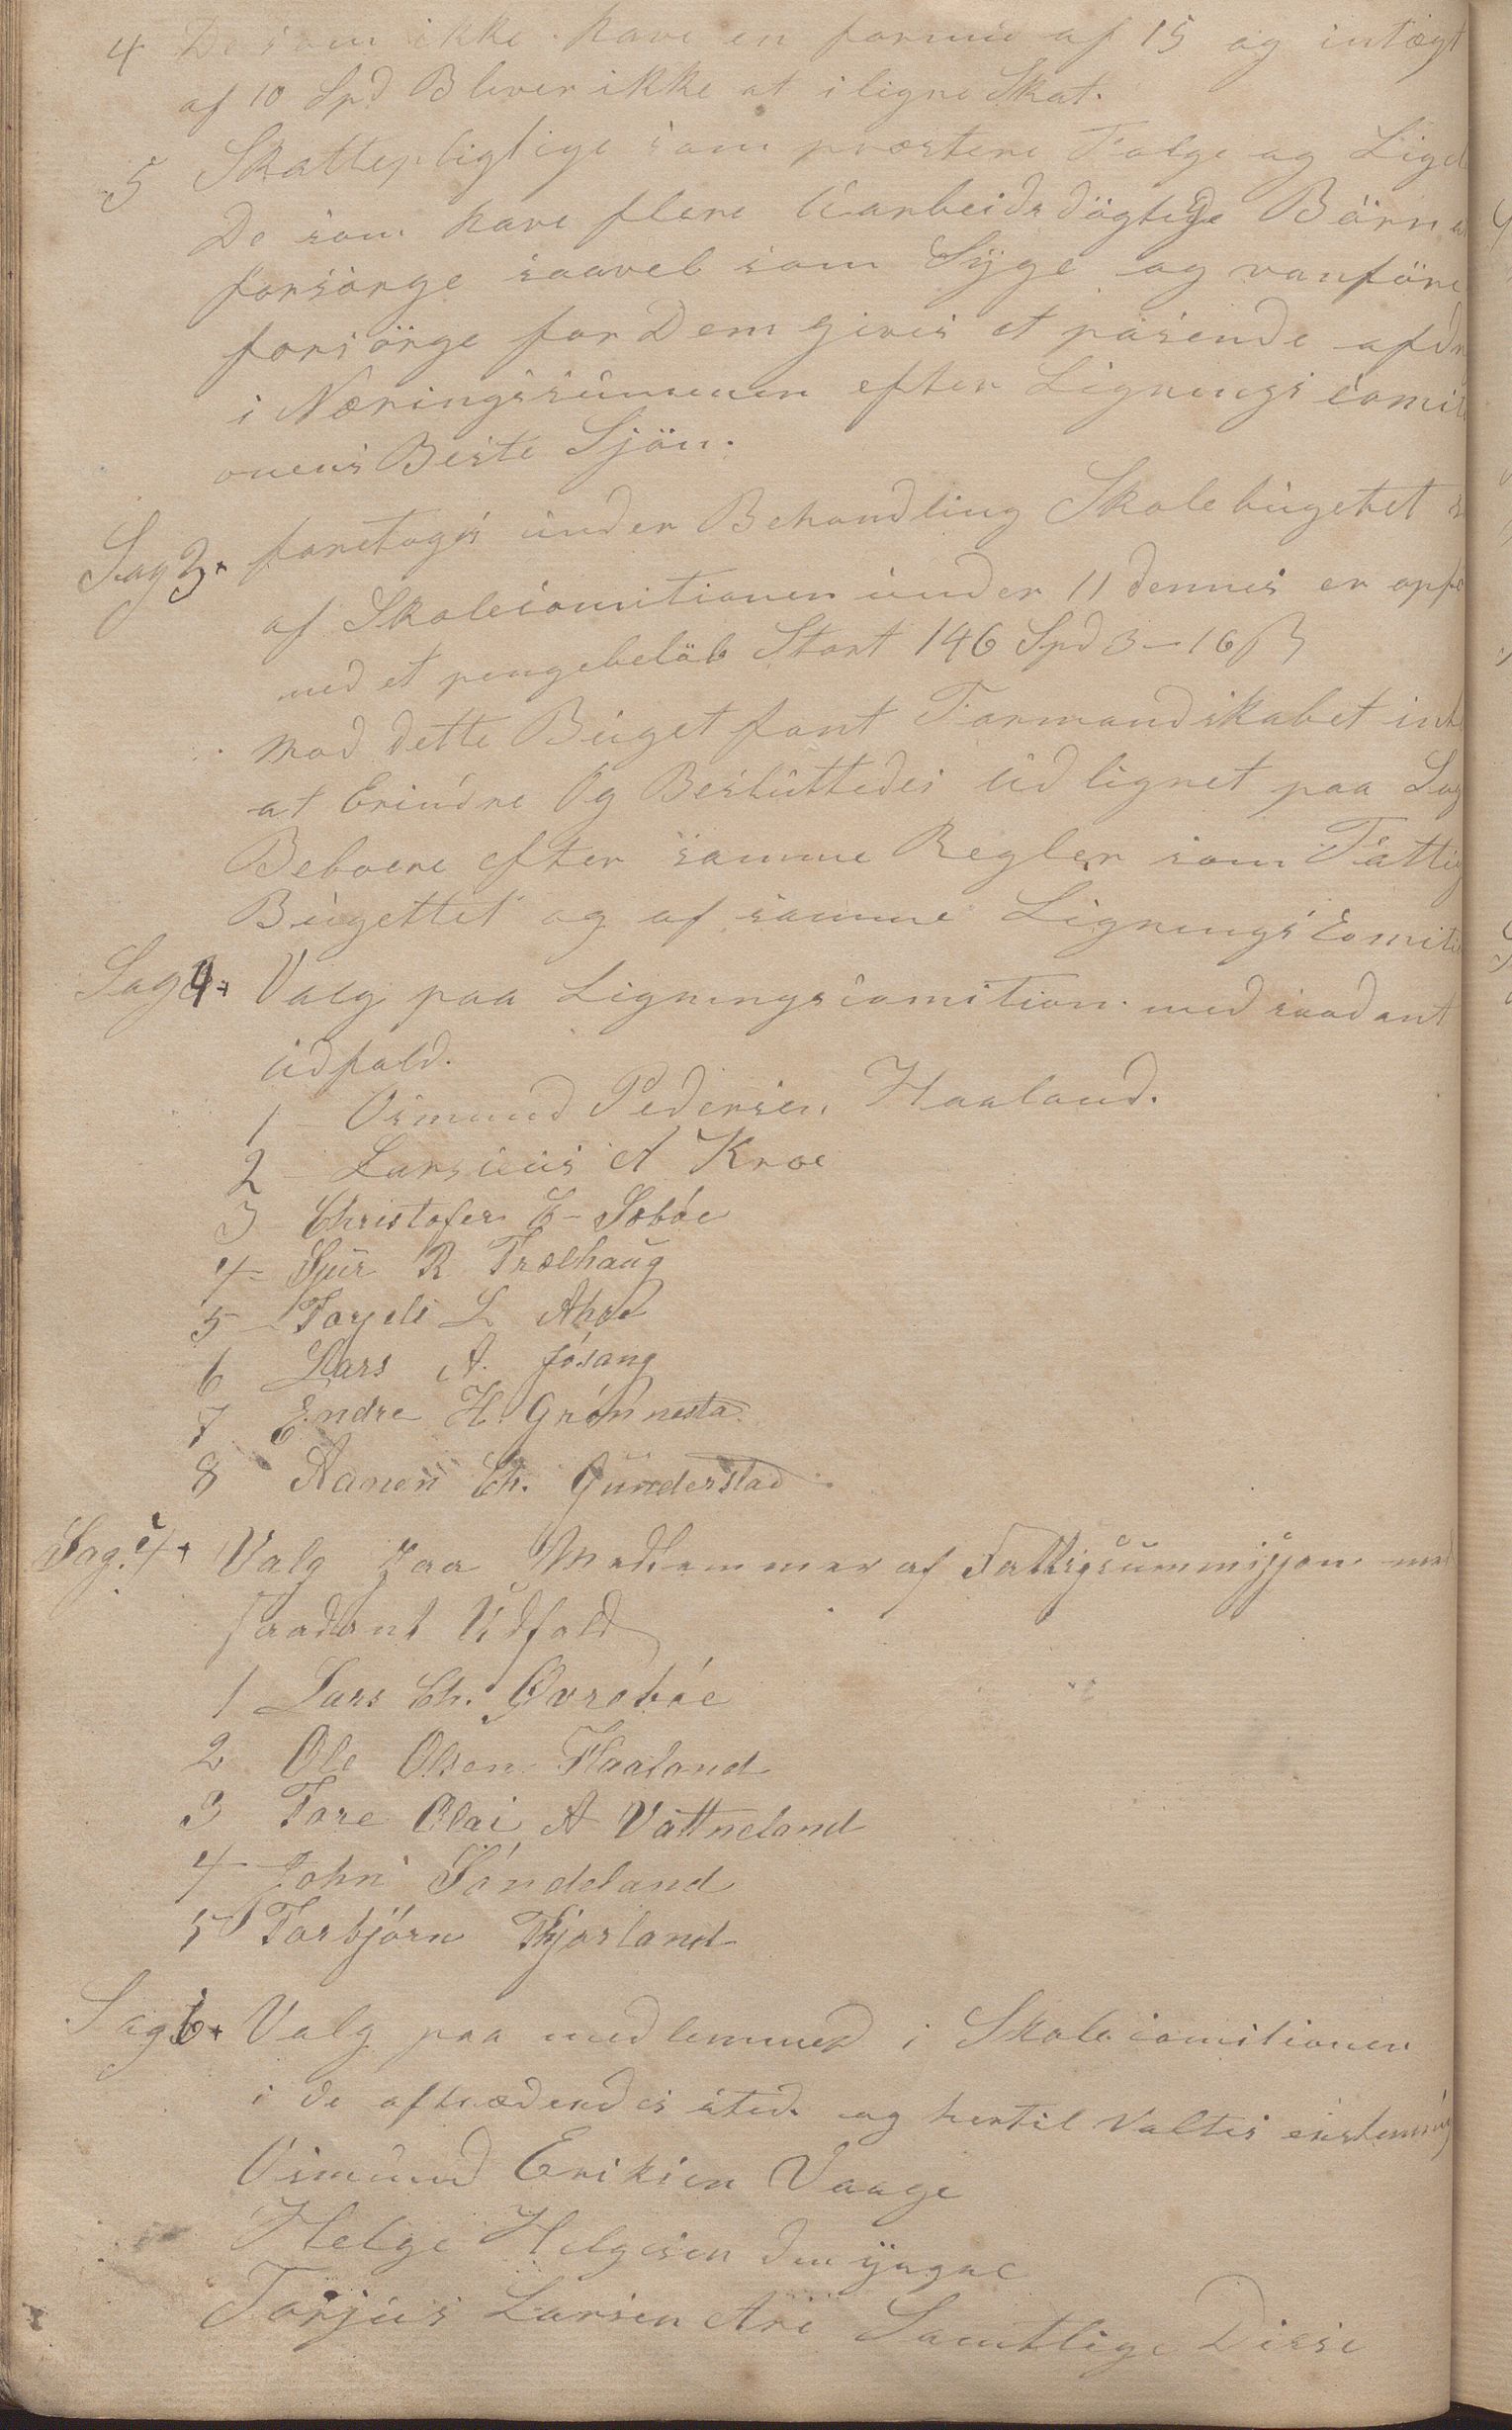 4 De som ikke have en formue af 15 og intægt
af 10 Spd Bliver ikke at iligne Skat.
5 Skattepligtige som præstere Følge og Liged
De som have flere Uarbeidsdögtige Börn
forsörge saavel som Syge og vanföre
forsörge for Dem gives et pasende afdr
i Næringssummen efter Lignings comit
onens Beste Skjön.
Sag 3. foretoges under Behandling Skolebugetet
af Skolecomitionen under 11 dennes er opfö
med et pengebelöb Stort 146 Spd 3 – 16 β
Mod dette Buget fant Formandskabet int
at Erindre Og Besluttedes Udlignet paa Sog
Beboere efter samme Regler som Fattig
Bugettet og af samme Lignings Comiti
Sag 4. Valg paa Ligningscomition med saadant
Udfald.
1 Osmund Pedersen Haaland.
2 Larsius A Kroe
3 Christofer E – Soböe
4 – Sjur R Trælhaug
5 – Torjels L Ahre
6 Lars A. Jösang
7 Endre H. Grönnesta
8 Aanen Ch. Gunderstad
Sag. Valg paa Medlemmer af Fattigcummisjon med
saadant Udfald
1 Lars Ch. Øvreböe
2 Ole Olsen Haaland
3 Tore Olai A Vattneland
4 John Söndeland
5 Torbjörn Thjorland
Sag 6. Valg paa medlemmer i Skolecomitionen
i de aftrædendes sted. og hertil Valtes enstemmig
Osmund Eriksen Vaage
Helge Helgesen den yngre
Torjus Larsen Are Samtlige Disse